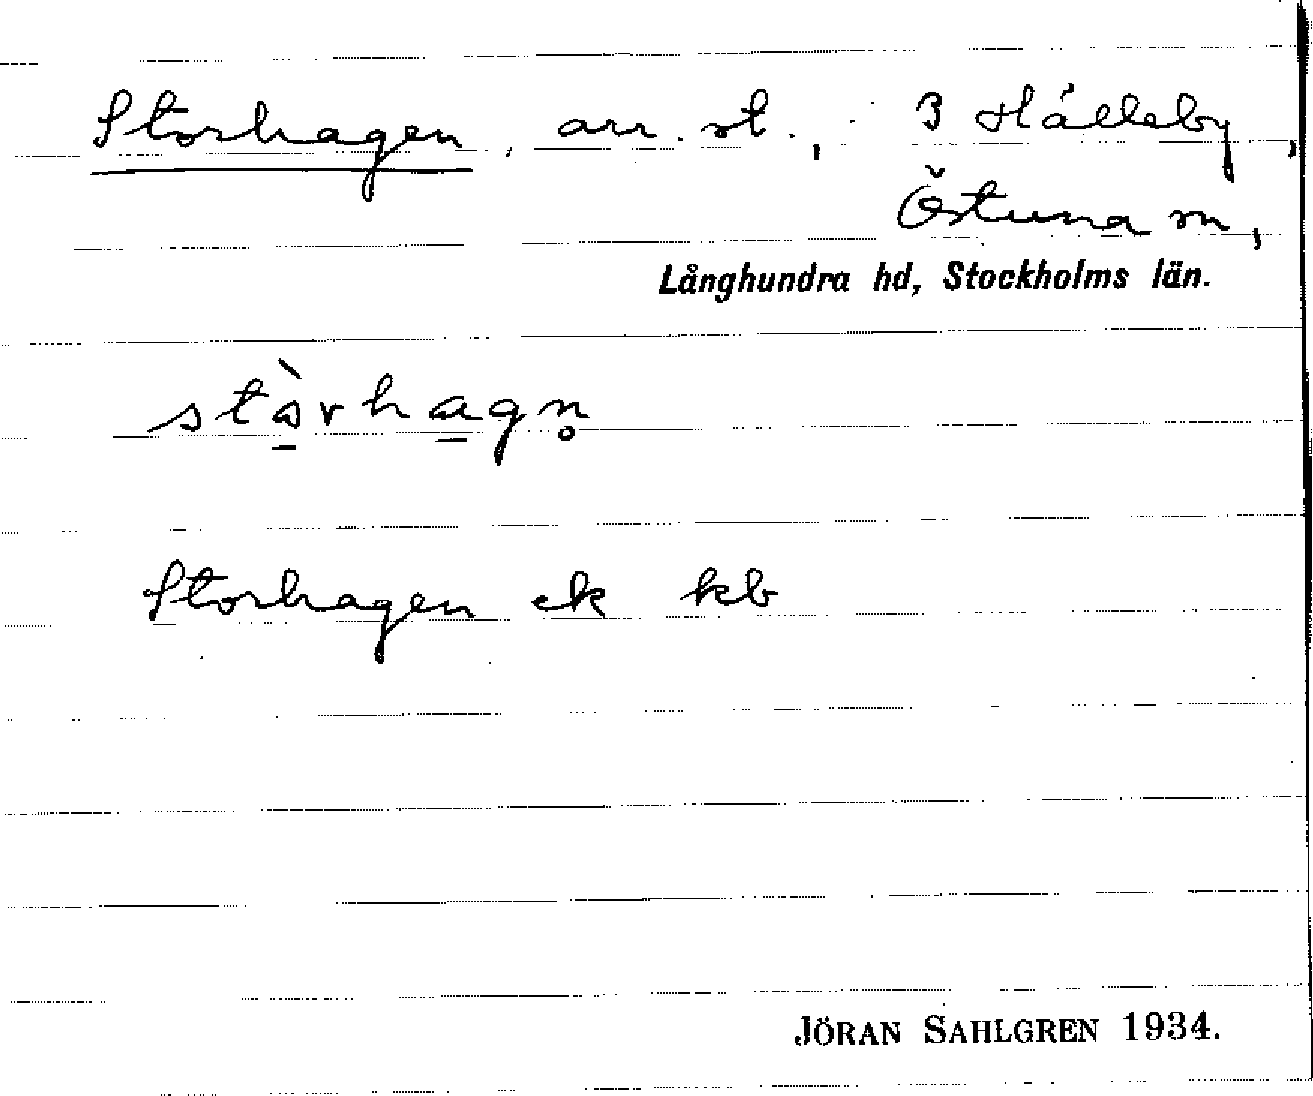 Storhagen, arr. st., 3 Hålleby,
Östuna sn,
Långhundra hd, Stockholms län.
Storhagen ek kb
JÖRAN SAHLGREN 1934.